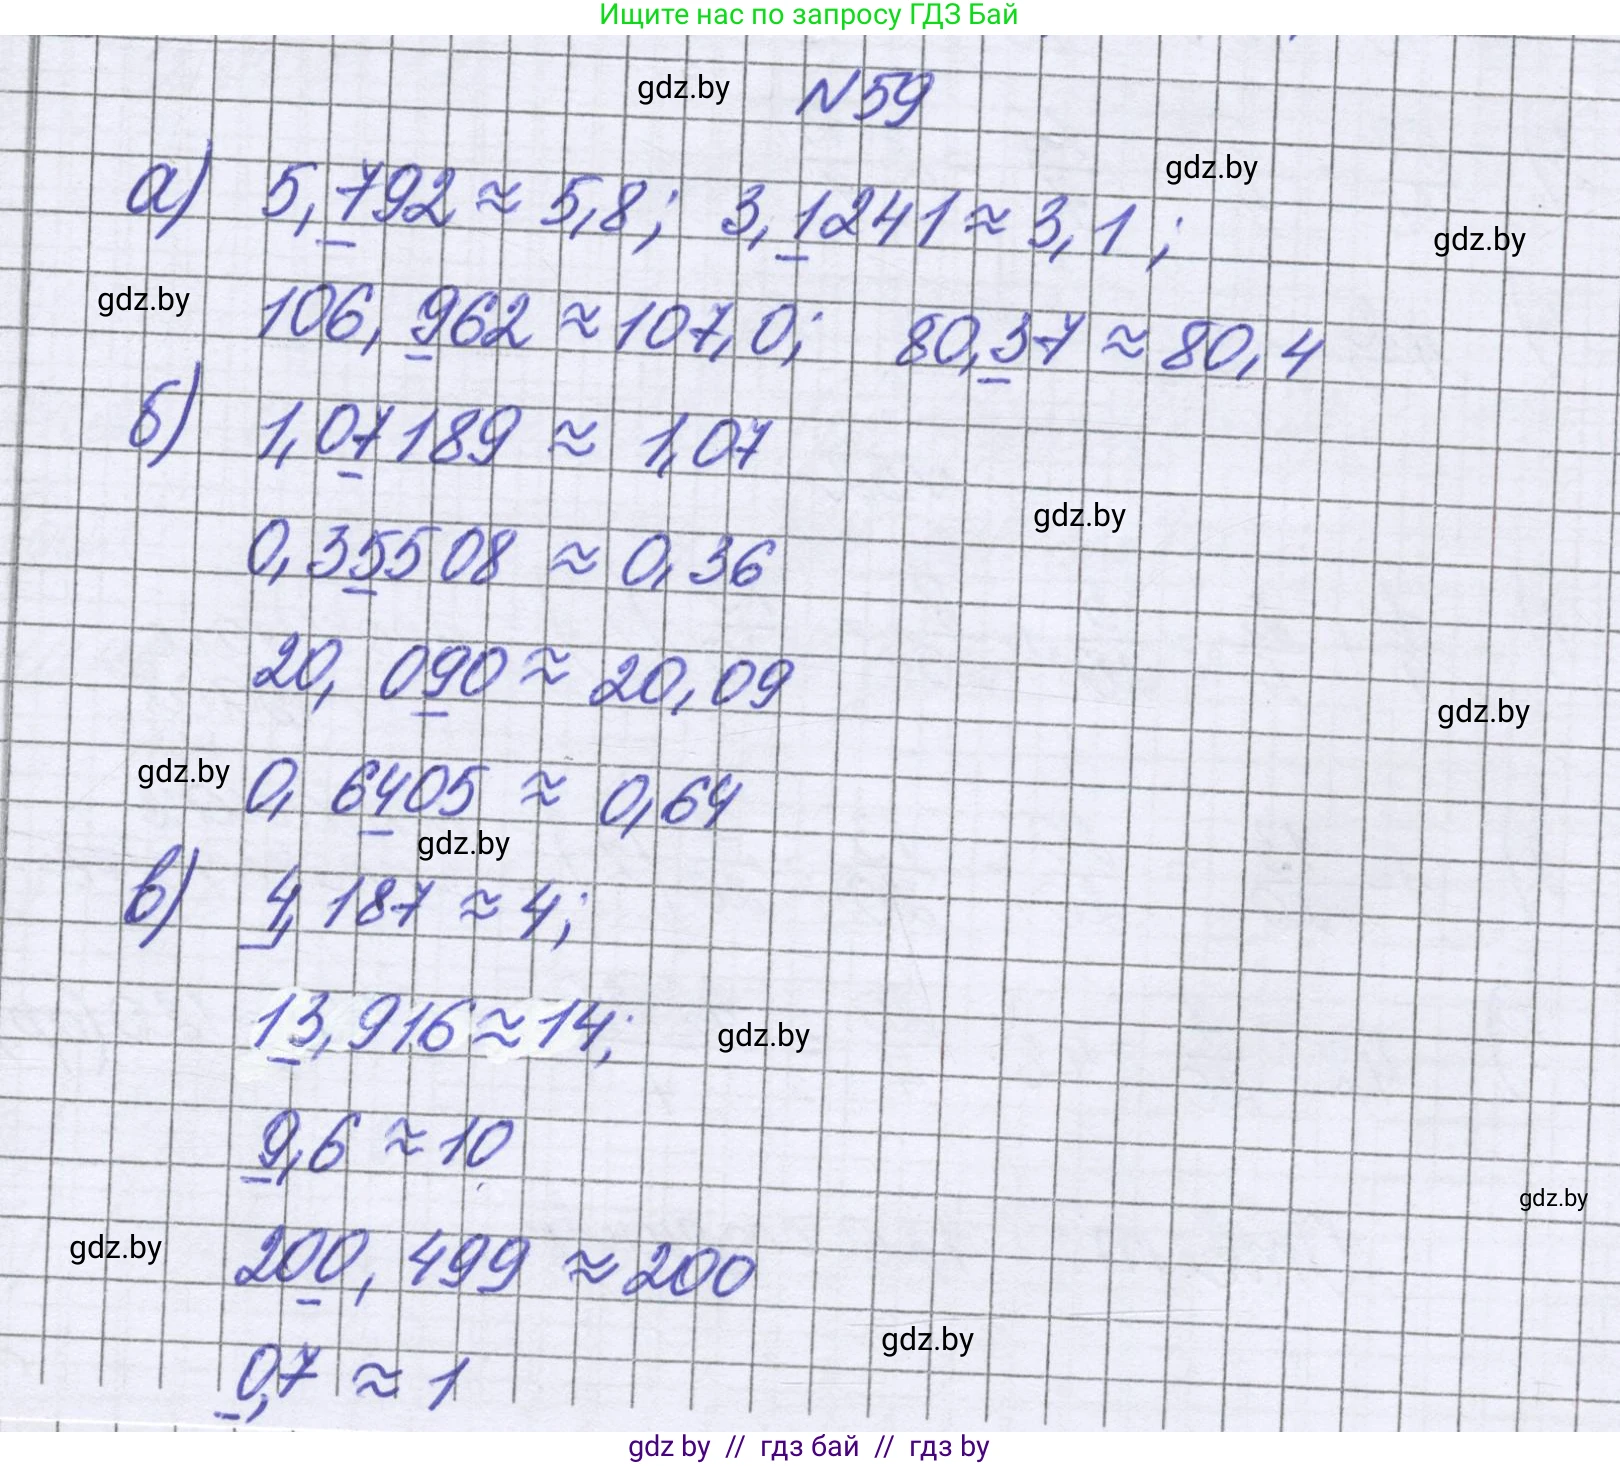 Ищите нас по запросу ГДЗ Бай
gdz.by
N59
gdz.by
а) 5,792 ≈ 5,8; 3,1241 ≈ 3,1;
gdz.by
gdz.by
106,962 ≈ 107,0; 80,37 ≈ 80,4
б) 1,07189 ≈ 1,07
gdz.by
0,35508 ≈ 0,36
20,090 ≈ 20,09
gdz.by
gdz.by
0,6405 ≈ 0,64
gdz.by
в) 4,187 ≈ 4;
13,916 ≈ 14;
gdz.by
9,6 ≈ 10
gdz.by
gdz.by
200,499 ≈ 200
gdz.by
0,7 ≈ 1
gdz by // гдз бай // гдз by